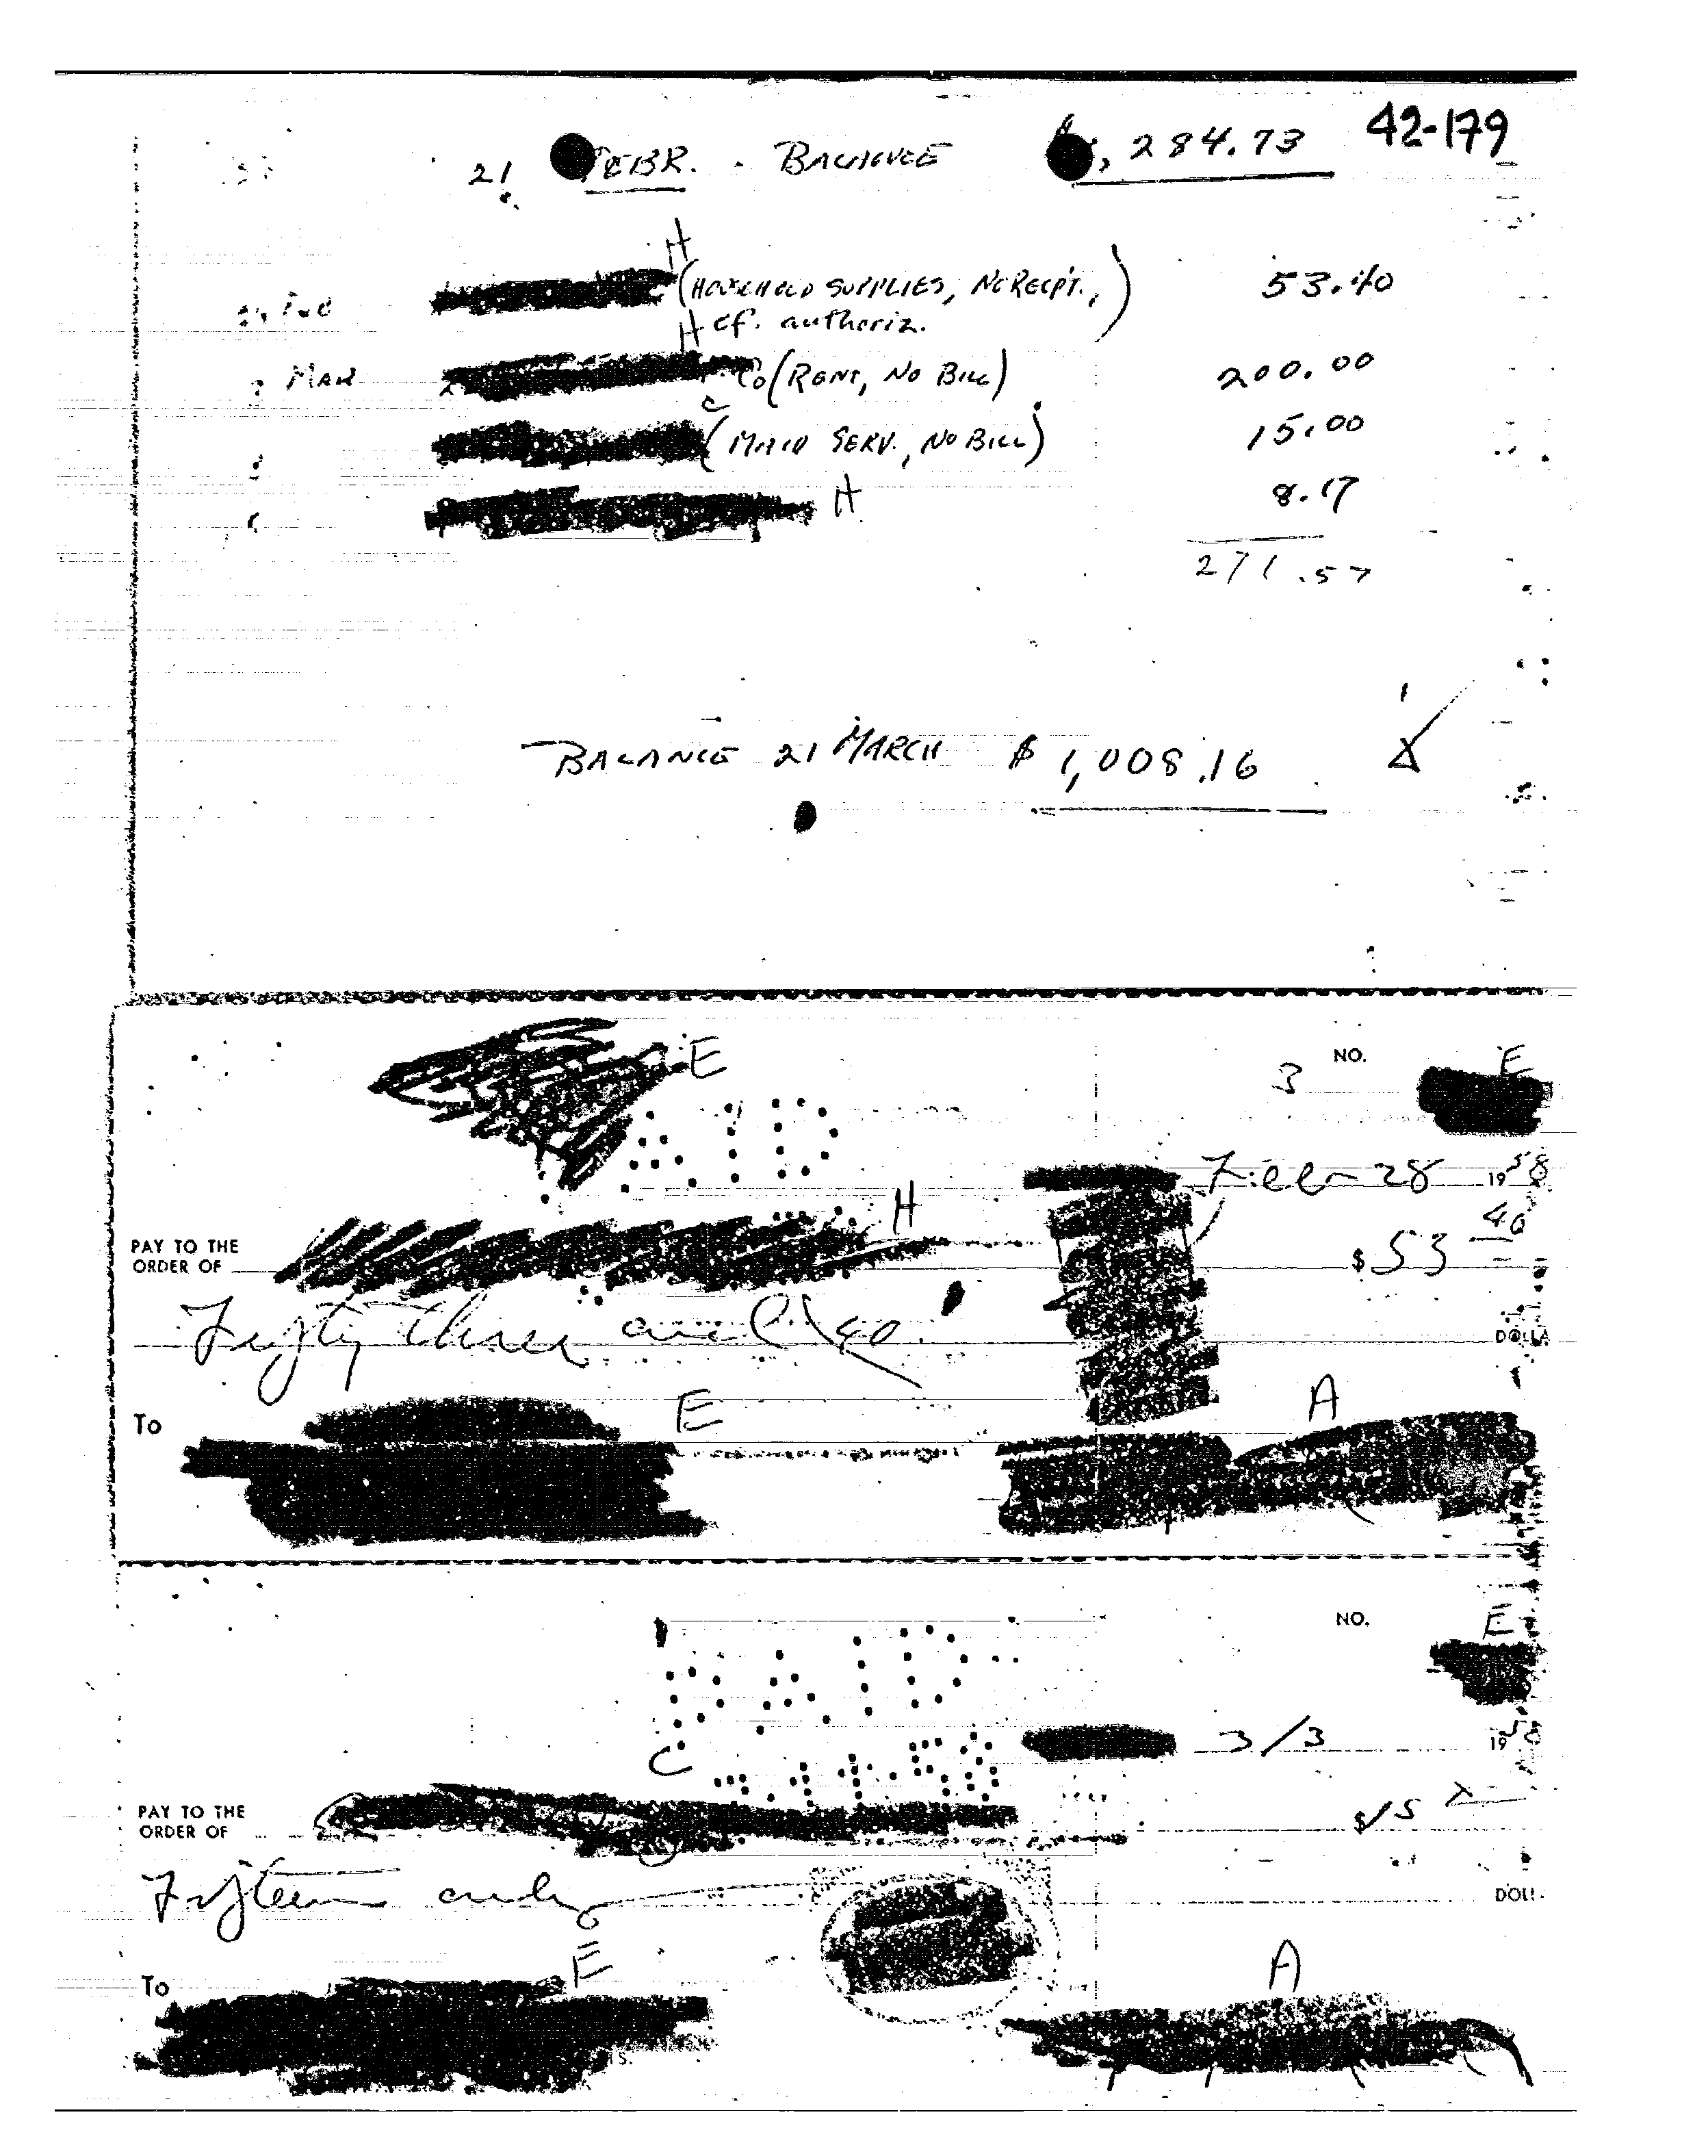 42-179
21 FEBR. - BALANCE , 284.73
H
(HOUSEHOLD SUPPLIES, NO RECPT., ) 53.40
H cf. authoriz.
MAR Co (RENT, NO BILL) 200.00
C
(MAID SERV., NO BILL) 15.00
H 8.17
271.57
BALANCE 21 MARCH $ 1,008.16
E NO. E
3
Feb 28 1958
H
PAY TO THE
ORDER OF $ 53 40
Fifty three and 40
DOLLA
To E A
NO. E
3/3 1958
C
PAY TO THE
ORDER OF $15
Fifteen only
DOLL
To E A